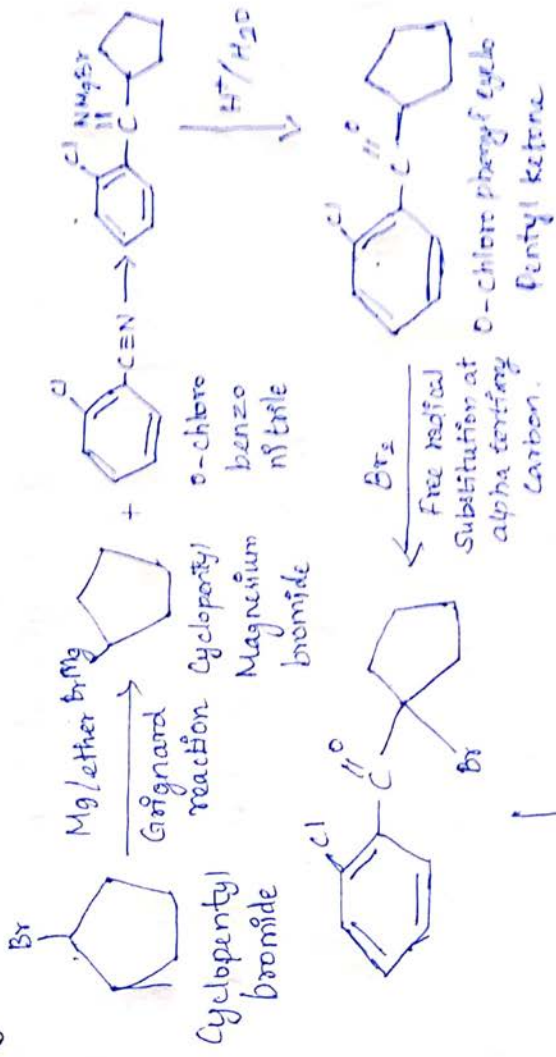 Br
Cyclopentyl
bromide
Mg/ether
Grignard
reaction
BrMg
Cyclopentyl
Magnesium
bromide
+
Cl
C≡N
o-chloro
benzo
nitrile
Cl NMgBr
C
H+/H2O
Cl O
C
O-chloro phenyl cyclo
Pentyl ketone
Br2
Free radical
Substitution at
alpha tertiary
Carbon.
Cl O
C
Br